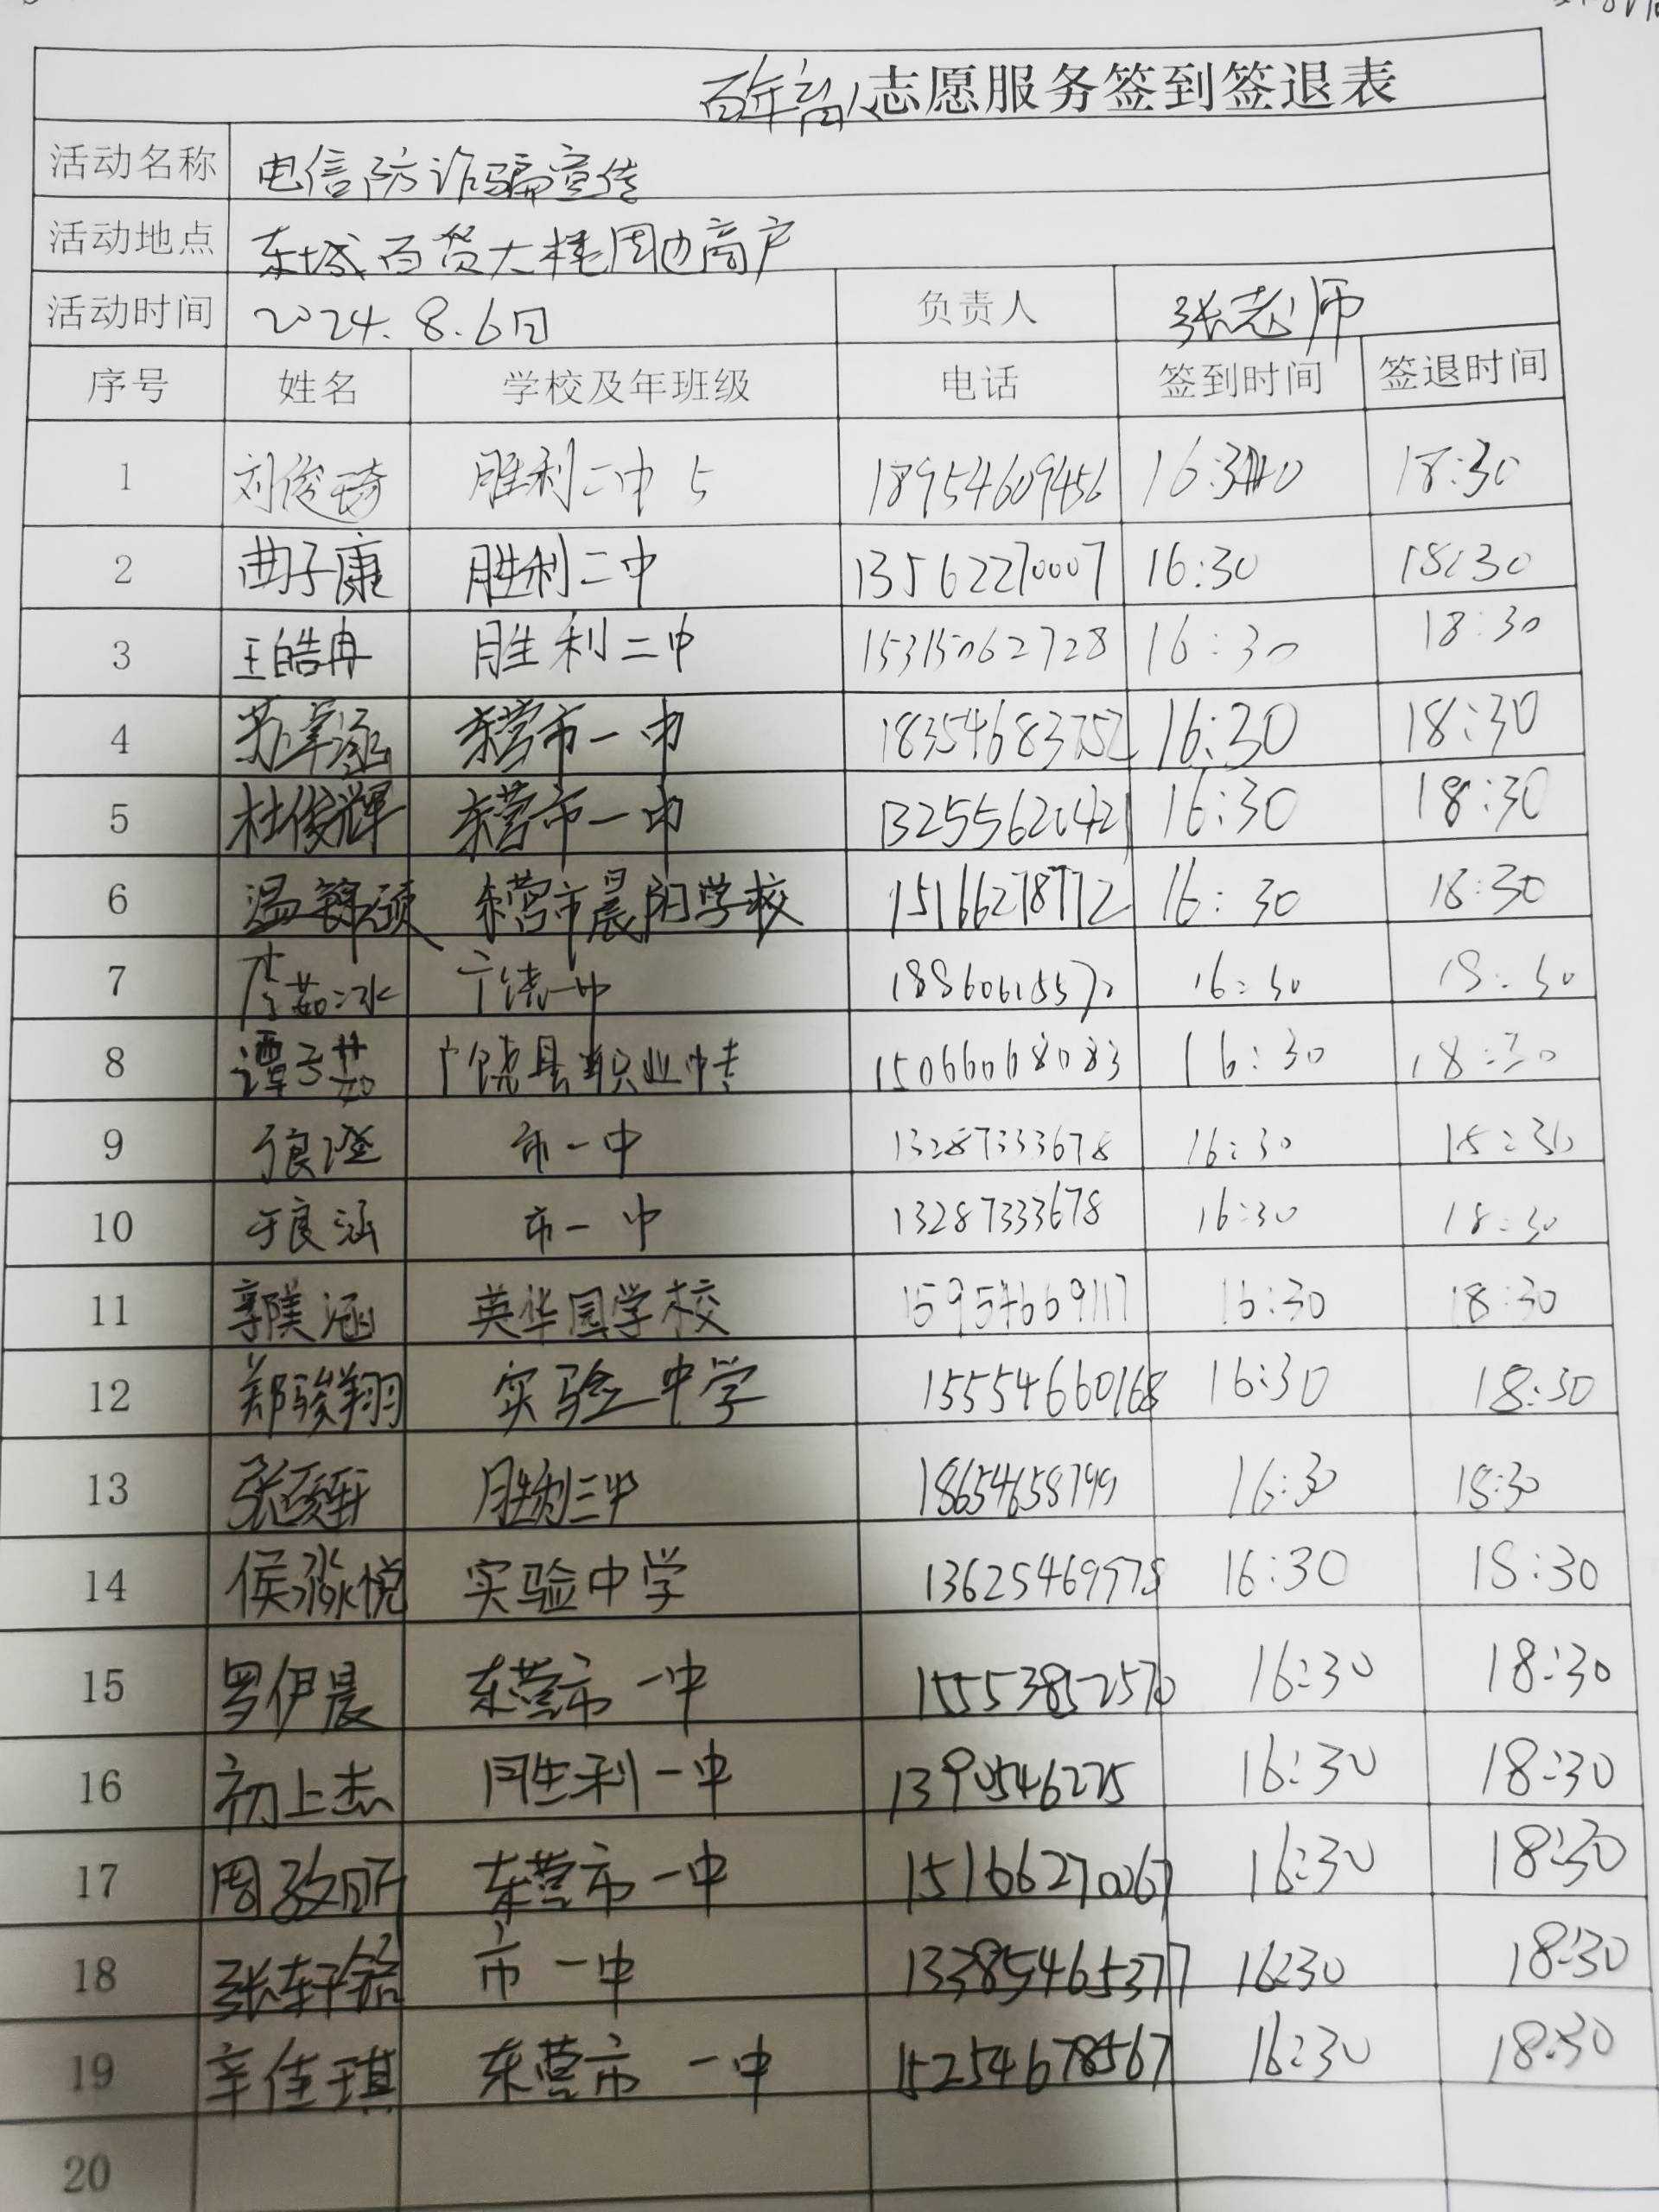 百年育人志愿服务签到签退表
活动名称 电信防诈骗宣传
活动地点 东城百货大楼周边商户
活动时间 2024.8.6日 负责人 张老师
序号 姓名 学校及年班级 电话 签到时间 签退时间
1 刘俊琦 胜利二中 5 18954609456 18:30
2 曲子康 胜利二中 13562270007 16:30 18:30
3 王皓冉 胜利二中 15315062728 16:30 18:30
4 苏卓涵 东营市一中 18354683752 16:30 18:30
5 杜俊辉 东营市一中 13255620421 16:30 18:30
6 温锦硕 东营市晨阳学校 15166278772 16:30 18:30
7 李茹冰 广饶一中 16:30 18:30
8 谭子茹 广饶县职业中专 15066068083 16:30 18:30
9 于良澄 市一中 13287333678 16:30 18:30
10 于良涵 市一中 13287333678 16:30 18:30
11 郭美涵 英华园学校 15954669117 16:30 18:30
12 郑骏翔 实验中学 15554660168 16:30 18:30
13 胜利三中 18654658799 16:30 18:30
14 侯淼悦 实验中学 13625469978 16:30 18:30
15 罗伊晨 东营市一中 15553852570 16:30 18:30
16 初上杰 胜利一中 1390546275 16:30 18:30
17 周孜昕 东营市一中 15166270067 16:30 18:30
18 张轩铭 市一中 13385465377 16:30 18:30
19 辛佳琪 东营市一中 15254678567 16:30 18:30
20